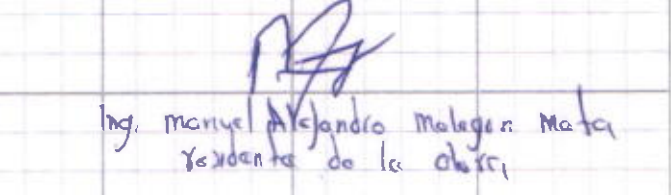 Ing. Manuel Alejandro Malagon Mata
residente de la obra